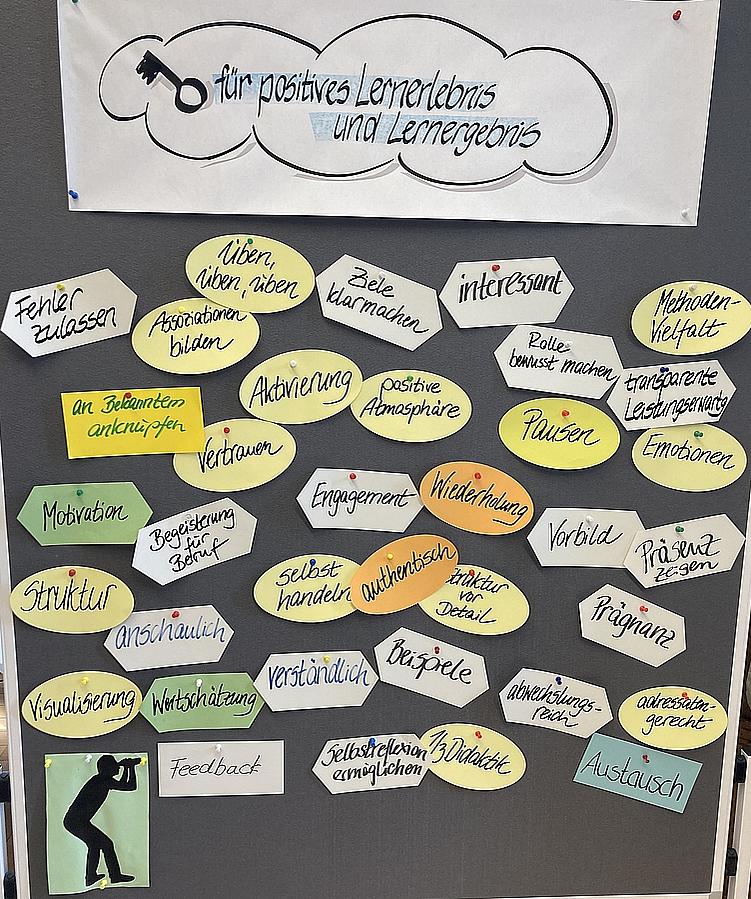 für positives Lernerlebnis
und Lernergebnis
Üben,
üben, üben
Fehler
zulassen
Assoziationen
bilden
Ziele
klarmachen
interessant
Methoden-
vielfalt
Rolle
bewusst machen
Aktivierung
positive
Atmosphäre
transparente
Leistungserwartg
an Bekanntem
anknüpfen
Vertrauen
Pausen
Emotionen
Motivation
Begeisterung
für
Beruf
Engagement
Wiederholung
Vorbild
Präsenz
zeigen
Struktur
selbst
handeln
authentisch
truktur
vor
Detail
Prägnanz
anschaulich
Visualisierung
Wortschätzung
verständlich
Beispiele
abwechslungs-
reich
adressaten-
gerecht
Feedback
Selbstreflexion
ermöglichen
1/3 Didaktik
Austausch